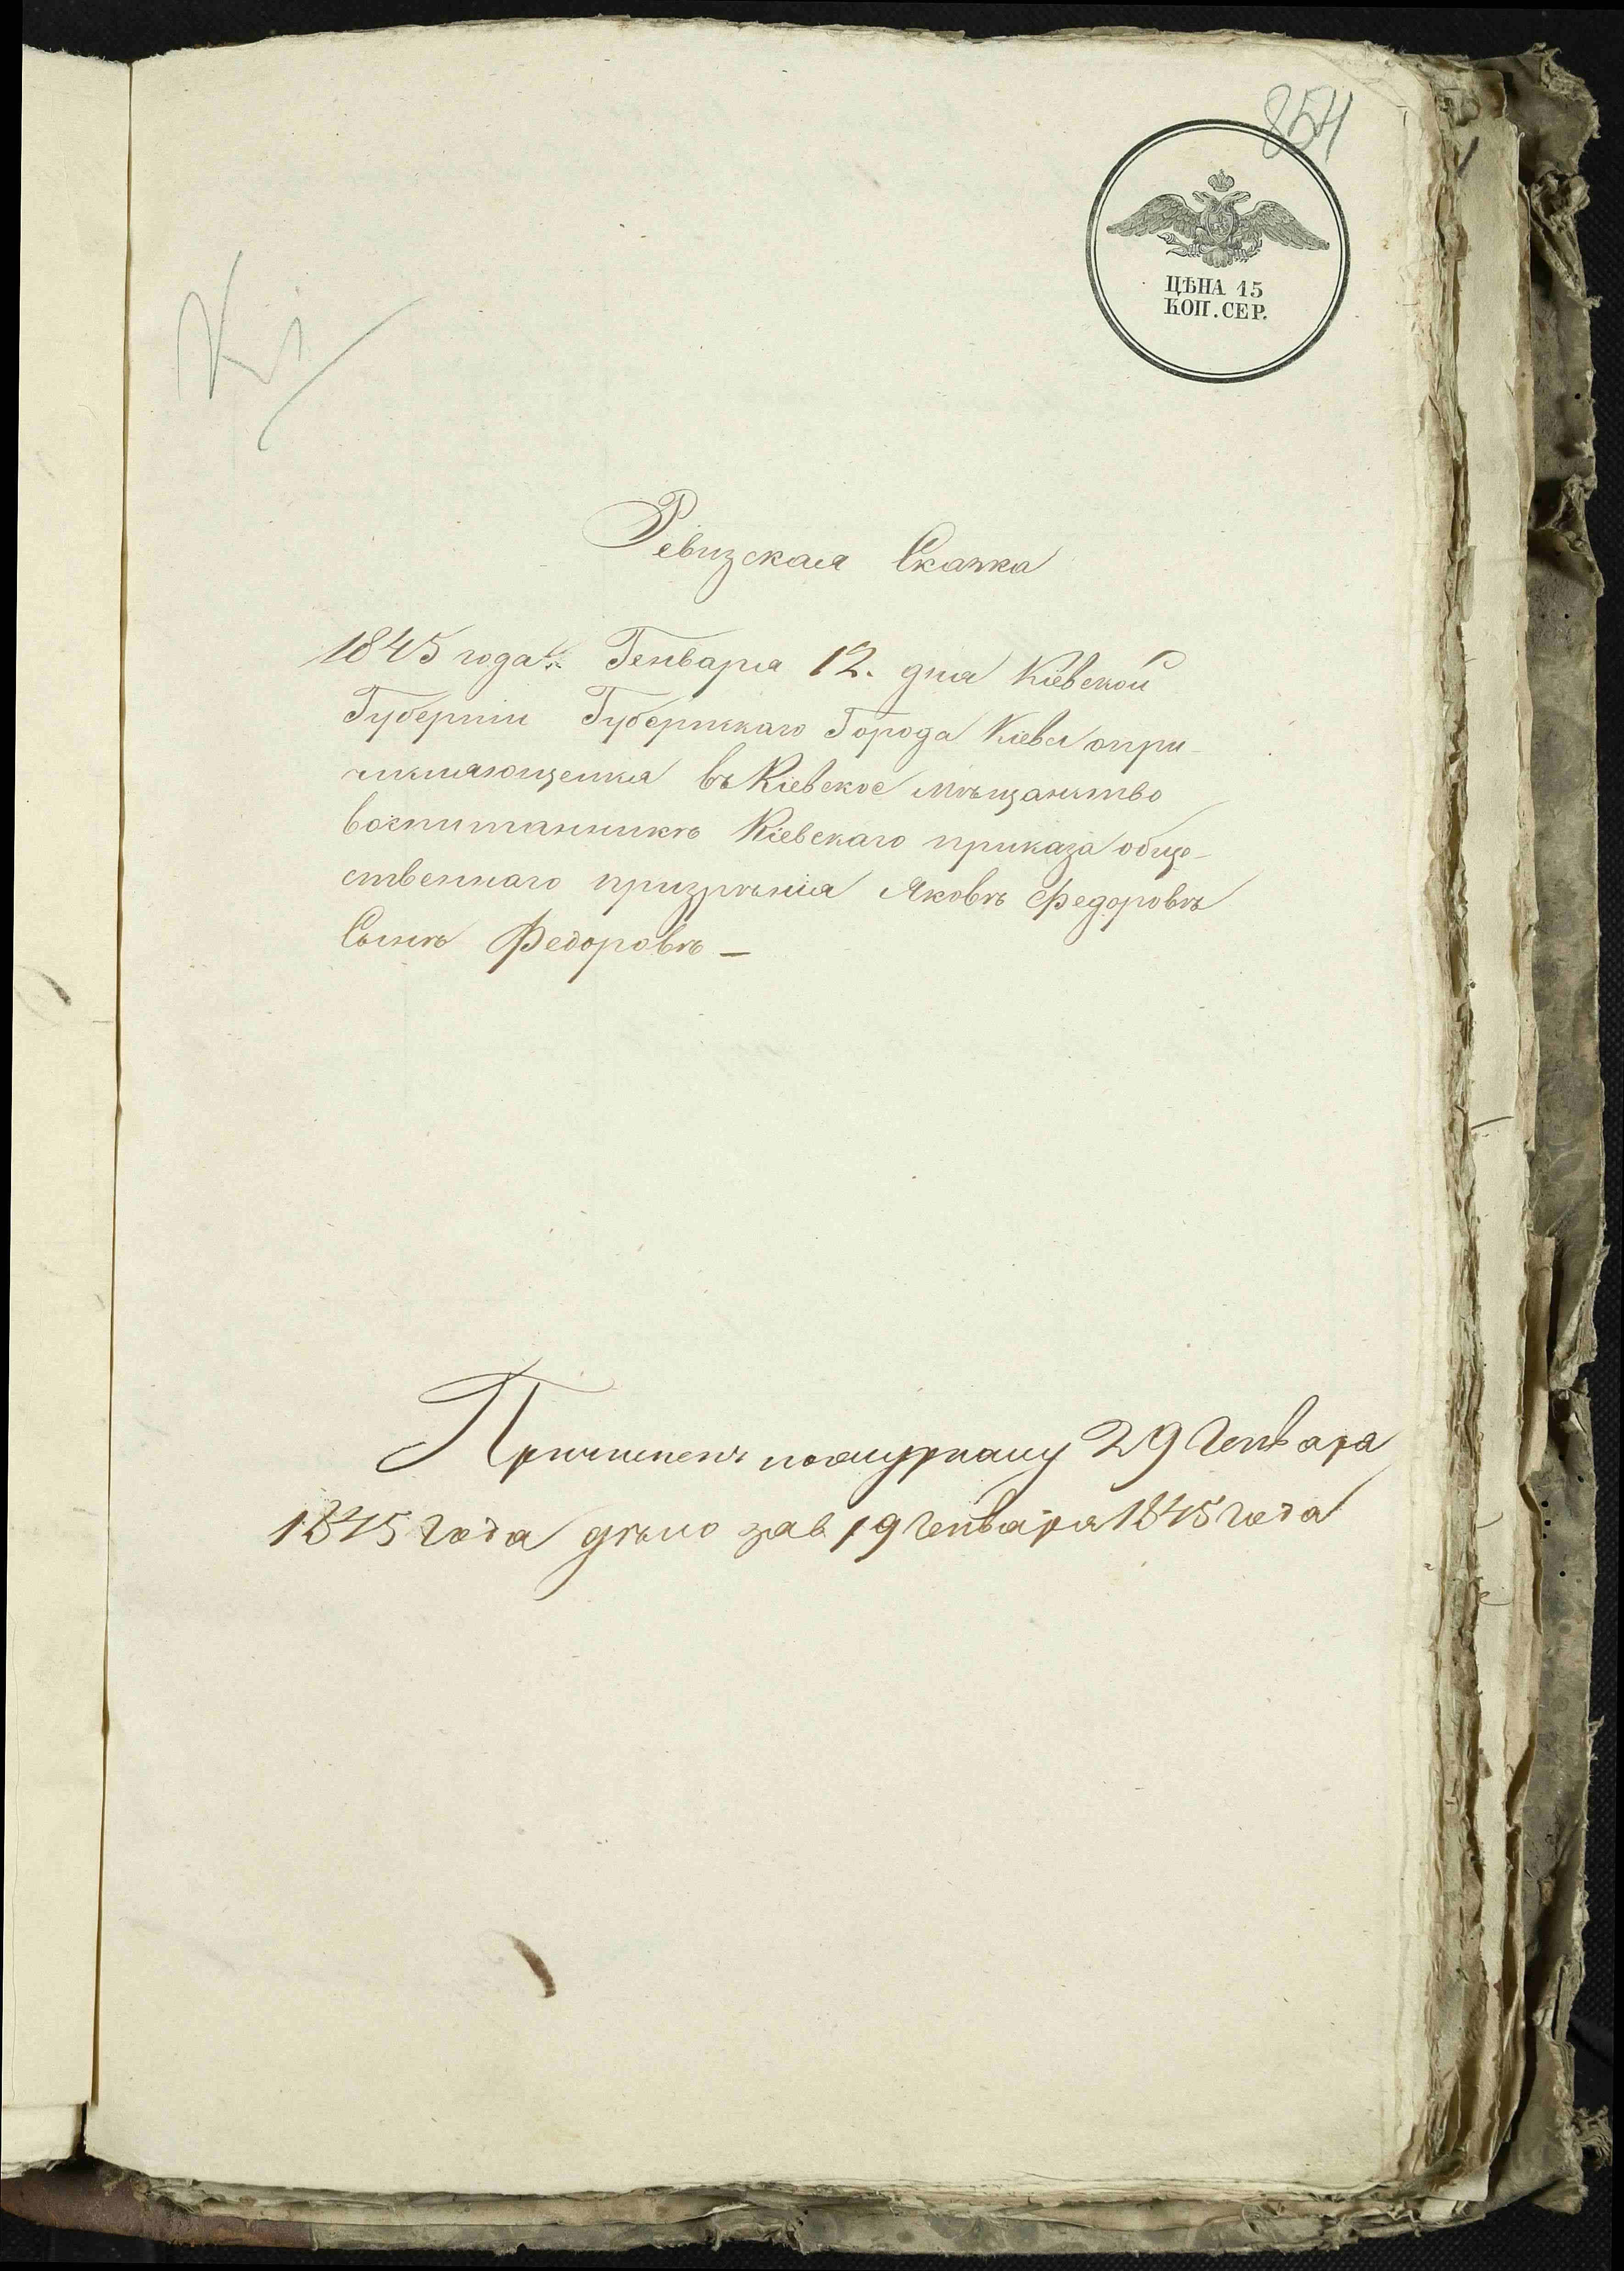 854
ЦѢНА 15
КОП. СЕР.
Ревизская Сказка
1845 года Генваря 12. дня Кіевской
Губерніи Губернскаго Города Кіева опри-
числяющемся въ Кіевское мѣщанство
воспитанникѣ Кіевскаго приказа обще-
ственнаго призрѣнія Яковѣ Федоровѣ
Сынѣ Федоровѣ —
Причисленъ пожурналу 29 Генваря
1845 года дѣло зав 19 Генваря 1845 года